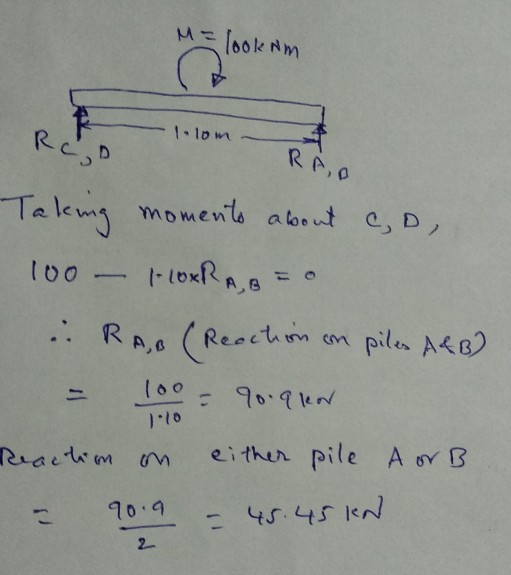 M = 100kNm
1.10m
R C, D
R A, B
Taking moments about C, D,
100 — 1.10xR A, B = 0
∴ R A, B (Reaction on piles A&B)
= 100/1.10 = 90.9 kN
Reaction on either pile A or B
= 90.9/2 = 45.45 kN